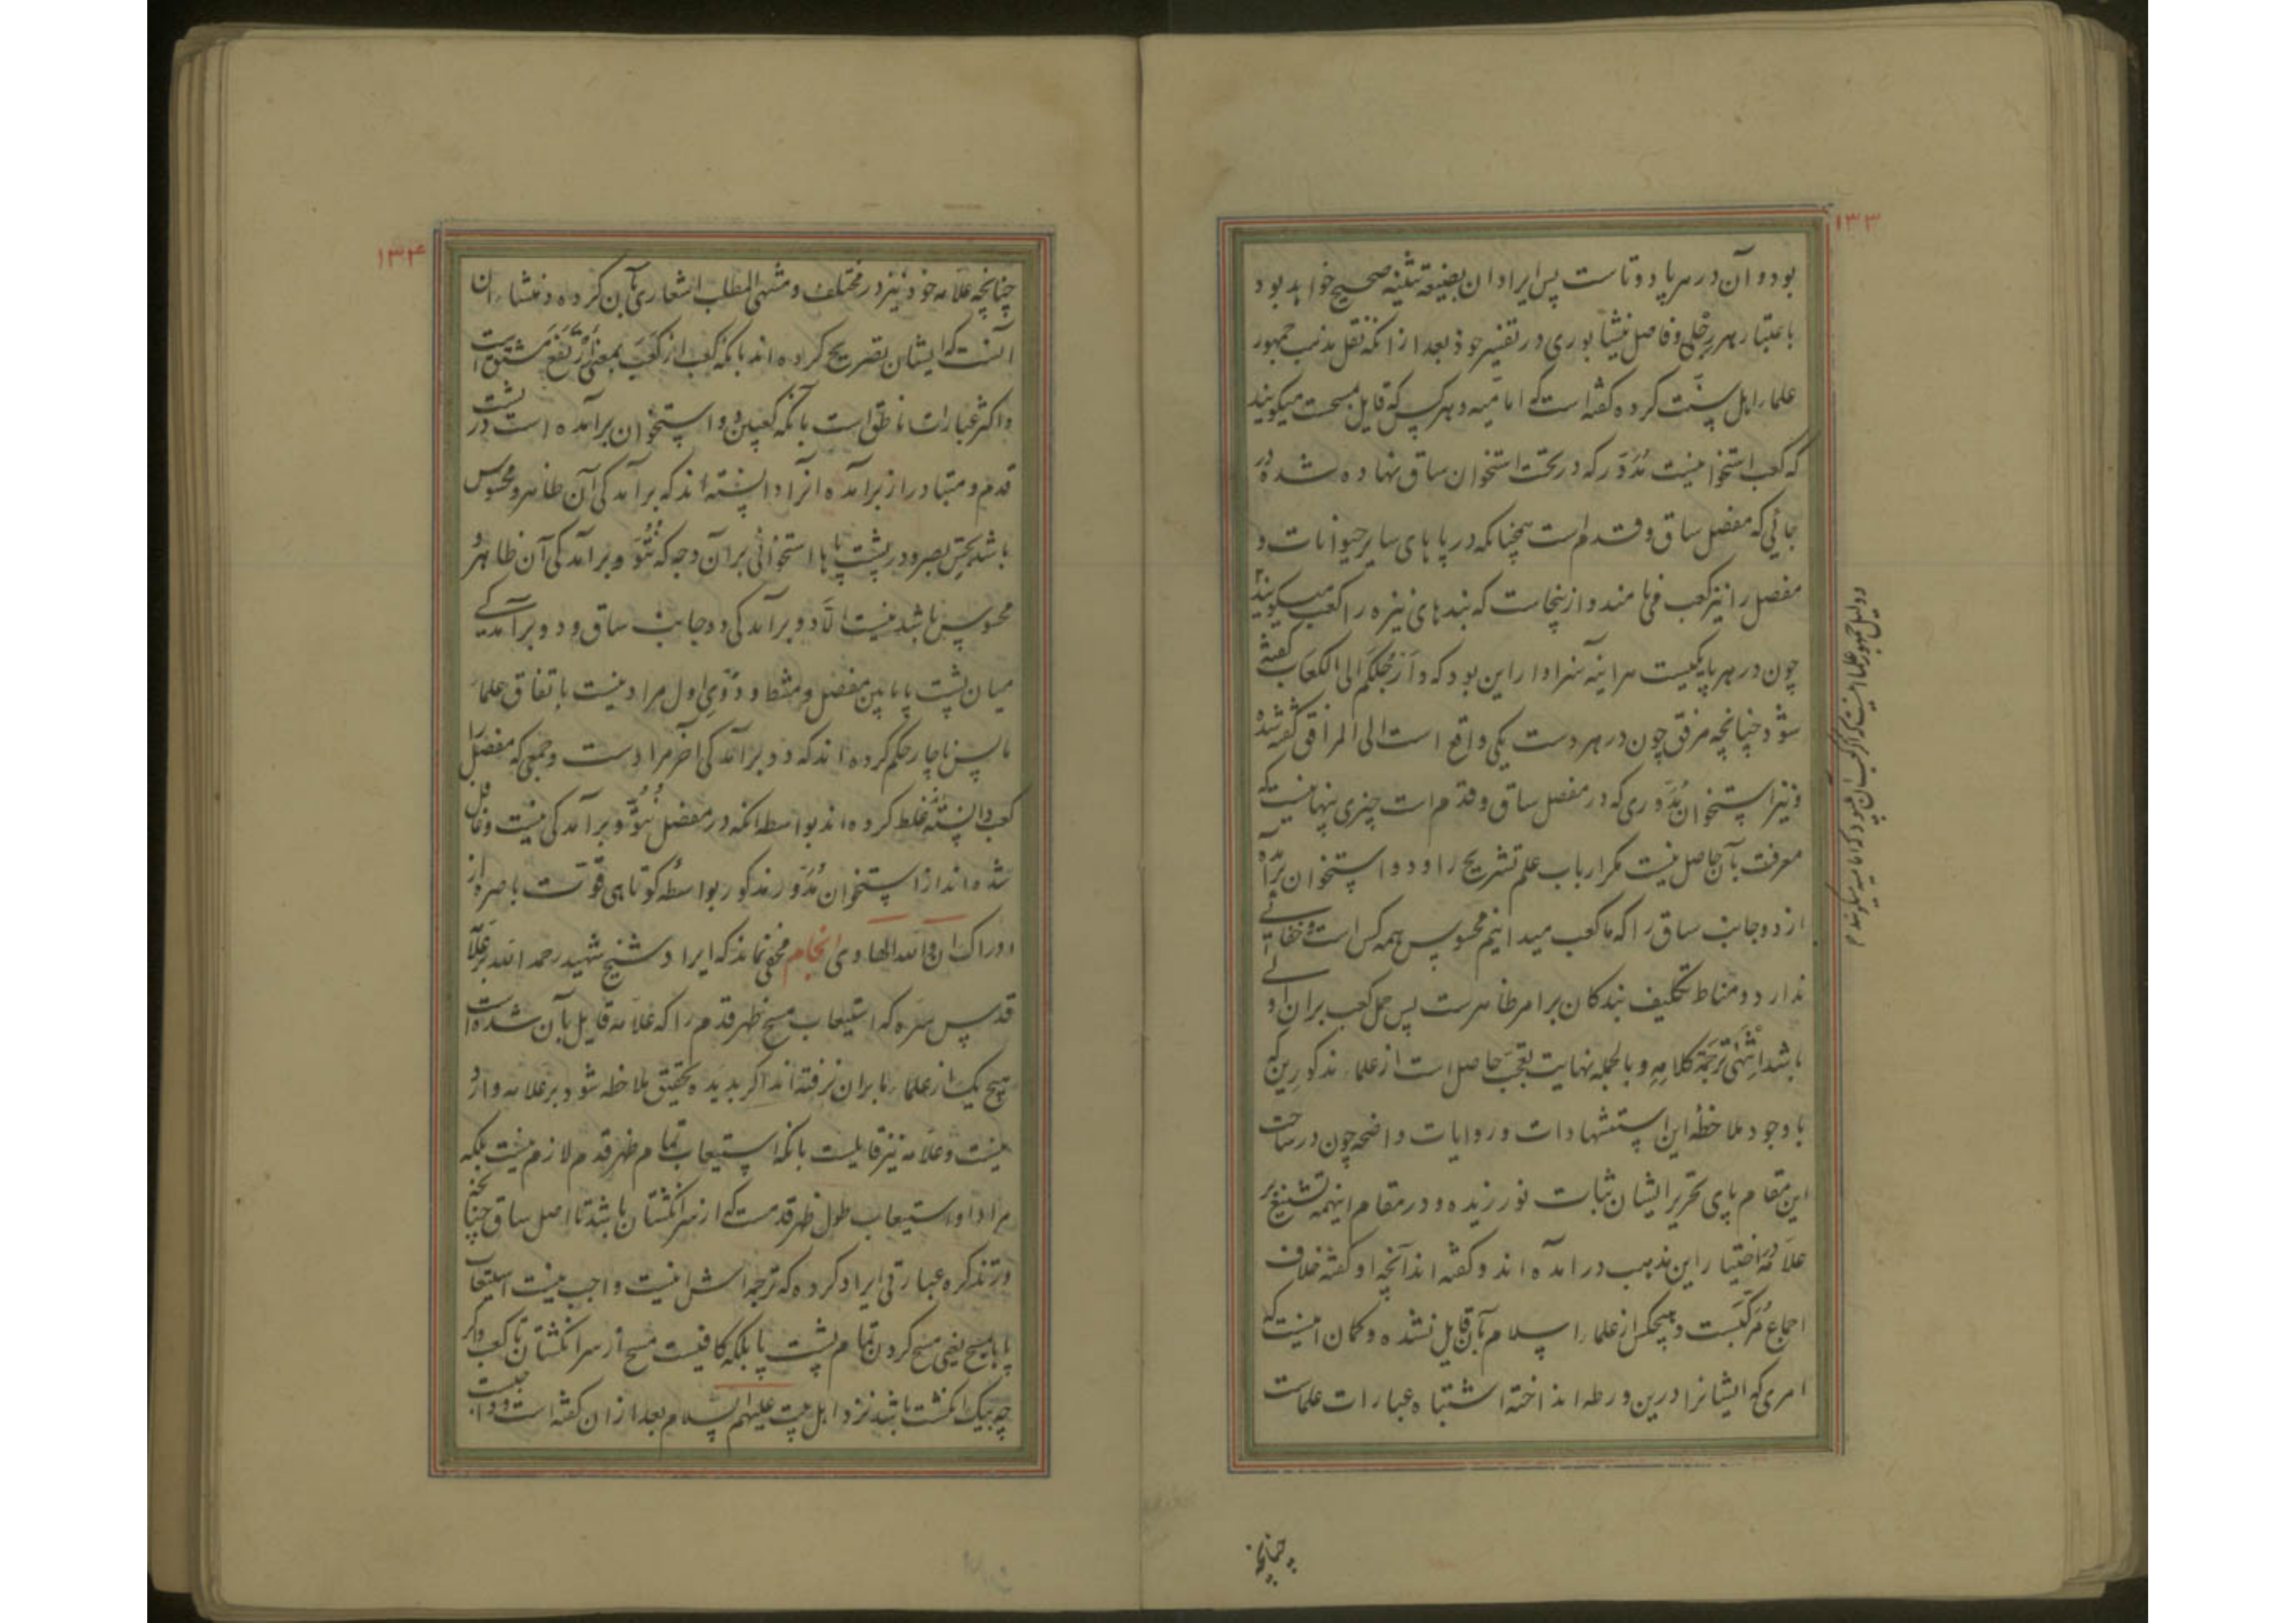 ۱۳۳
بود و آن در هر پا دوتاست پس ایراد ان بصیغه تثنیه صحیح خواهد بود
باعتبار هر رجلی و فاضل نیشابوری در تفسیر خود بعد از انکه نقل مذهب جمهور
علماء اهل سنت کرده گفته است که امامیه و هر کس که قایل بمسحت میکویند
که کعب استخوانیست مدوّر که در تحت استخوان ساق نهاده شده در
جائی که مفصل ساق و قدم است همچنانکه در پاهای سایر حیوانات و
مفصل را نیز کعب می نامند و ازینجاست که بندهای نیزه را کعب میکویند
چون در هر پا یکیست هر اینه سزاوار این بود که و ارجلکم الی الکعاب گفته
شود چنانچه مرفق چون در هر دست یکی واقع است الی المرافق گفته شده
و نیز استخوان مدوّری که در مفصل ساق و قدم است چیزی پنهانیست که
معرفت بآن حاصل نیست مگر ارباب علم تشریح را و دو استخوان برآمده
از دو جانب ساق را که ما کعب میدانیم محسوس همه کس است و خفائی
ندارد و مناط تکلیف بندکان بر امر ظاهرست پس حمل کعب بران اولی
باشد انتهی ترجمة کلامه و بالجمله نهایت تعجب حاصل است از علماء مذکورین که
با وجود ملاحظه این استشهادات و روایات واضحه چون در ساحت
این مقام پای تحریر ایشان ثبات نورزیده و در مقام اینهمه تشنیع بر
علامه در اختیار این مذهب درامده اند و گفته اند آنچه او گفته خلاف
اجماع مرکبست و هیچکس از علماء اسلام بآن قایل نشده و گمان اینست که
امری که ایشانرا درین ورطه انداخته اشتباه عبارات علماست
و دلیل جمهور علما اینست که اگر کعب آن بود که امامیه میکویند
چنانچه
۱۳۴
چنانچه علامه خود نیز در مختلف و منتهی المطلب اشعاری بآن کرده و منشاء ان
آنست که ایشان تصریح کرده اند بانکه کعب از کعب بمعنی ارتفع مشتق است
و اکثر عبارات ناطق است بآنکه کعبین دو استخوان برآمده است در پشت
قدم و متبادر از برآمده انرا دانسته اند که برآمدگی آن ظاهر و محسوس
باشد بحس بصر و در پشت پاها استخوانی بر آن وجه که نتوّ و برآمدگی آن ظاهر و
محسوس باشد نیست الّا دو برآمدگی دو جانب ساق و دو برآمدگی
میان پشت پا ما بین مفصل و مشط و دوی اول مراد نیست باتفاق علماء
ما پس ناچار حکم کرده اند که دو برآمدگی آخر مراد ست و جمعی که مفصل را
کعب دانسته غلط کرده اند بواسطه انکه در مفصل نتوّ و برآمدگی نیست و غافل
شده اند از استخوان مدوّر مذکور بواسطه کوتاهی قوّت باصره از
ادراک ان و الله الهادی انجام مخفی نماند که ایراد شیخ شهید رحمه الله بر علامه
قدس سره که استیعاب مسح ظهر قدم را که علامه قایل بآن شده است
هیچ یک از علماء ما بران نرفته اند اگر بدیده تحقیق ملاحظه شود بر علامه وارد
نیست و علامه نیز قایلست بانکه استیعاب تمام ظهر قدم لازم نیست بلکه
مراد او استیعاب طول ظهر قدمست که از سر انکشتان باشد تا اصل ساق چنانچه
در تذکره عبارتی ایراد کرده که ترجمه اش اینست واجب نیست استیعاب
پا بمسح یعنی مسح کردن تمام پشت پا بلکه کافیست مسح از سر انکشتان تا کعب و اگر
چه بیک انکشت باشد نزد اهل بیت علیهم السلام بعد از ان گفته است و واجبست